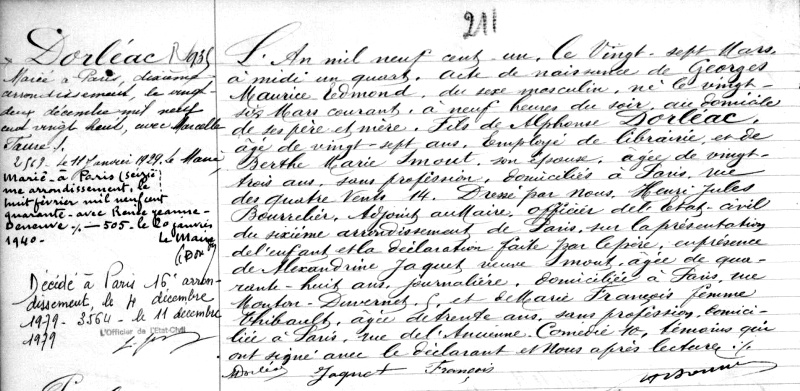 211
Dorléac
Marié à Paris, dixième
arrondissement, le vingt-
deux décembre mil neuf
cent vingt huit, avec Marcelle
Faure
259. le 11 Janvier 1929. le Maire
Marié à Paris (seiziè-
me arrondissement, le
huit février mil neuf cent
quarante avec Renée Jeanne
Deneuve ./. 505. le 20 janvier
1940. Le Maire
Décédé à Paris 16e arron-
dissement, le 4 décembre
1979 - 3564 - le 11 décembre
1979 L'Officier de l'Etat-Civil
L'An mil neuf cent un, le Vingt-sept Mars,
à midi un quart, acte de naissance de Georges
Maurice Edmond, du sexe masculin, né le vingt-
six Mars courant, à neuf heures du soir, au domicile
de ses père et mère. Fils de Alphonse Dorléac,
âgé de vingt-sept ans, Employé de librairie, et de
Berthe Marie Imout, son Epouse, âgée de vingt-
trois ans, sans profession, domiciliés à Paris, rue
des quatre Vents 14. Dressé par nous, Henri Jules
Bourrelier, Adjoint au Maire, officier de l'Etat civil
du sixième arrondissement de Paris, sur la présentation
de l'enfant et la déclaration faite par le père, en présence
de Alexandrine Jaquet veuve Imout, âgée de qua-
rante-huit ans, journalière, domiciliée à Paris, rue
Mouton-Duvernet, 5, et de Marie François femme
Thibault, âgée de trente ans, sans profession, domici-
liée à Paris, rue de l'Ancienne Comédie 10, témoins qui
ont signé avec le déclarant et Nous après lecture ./.
Dorléac Jaquet François